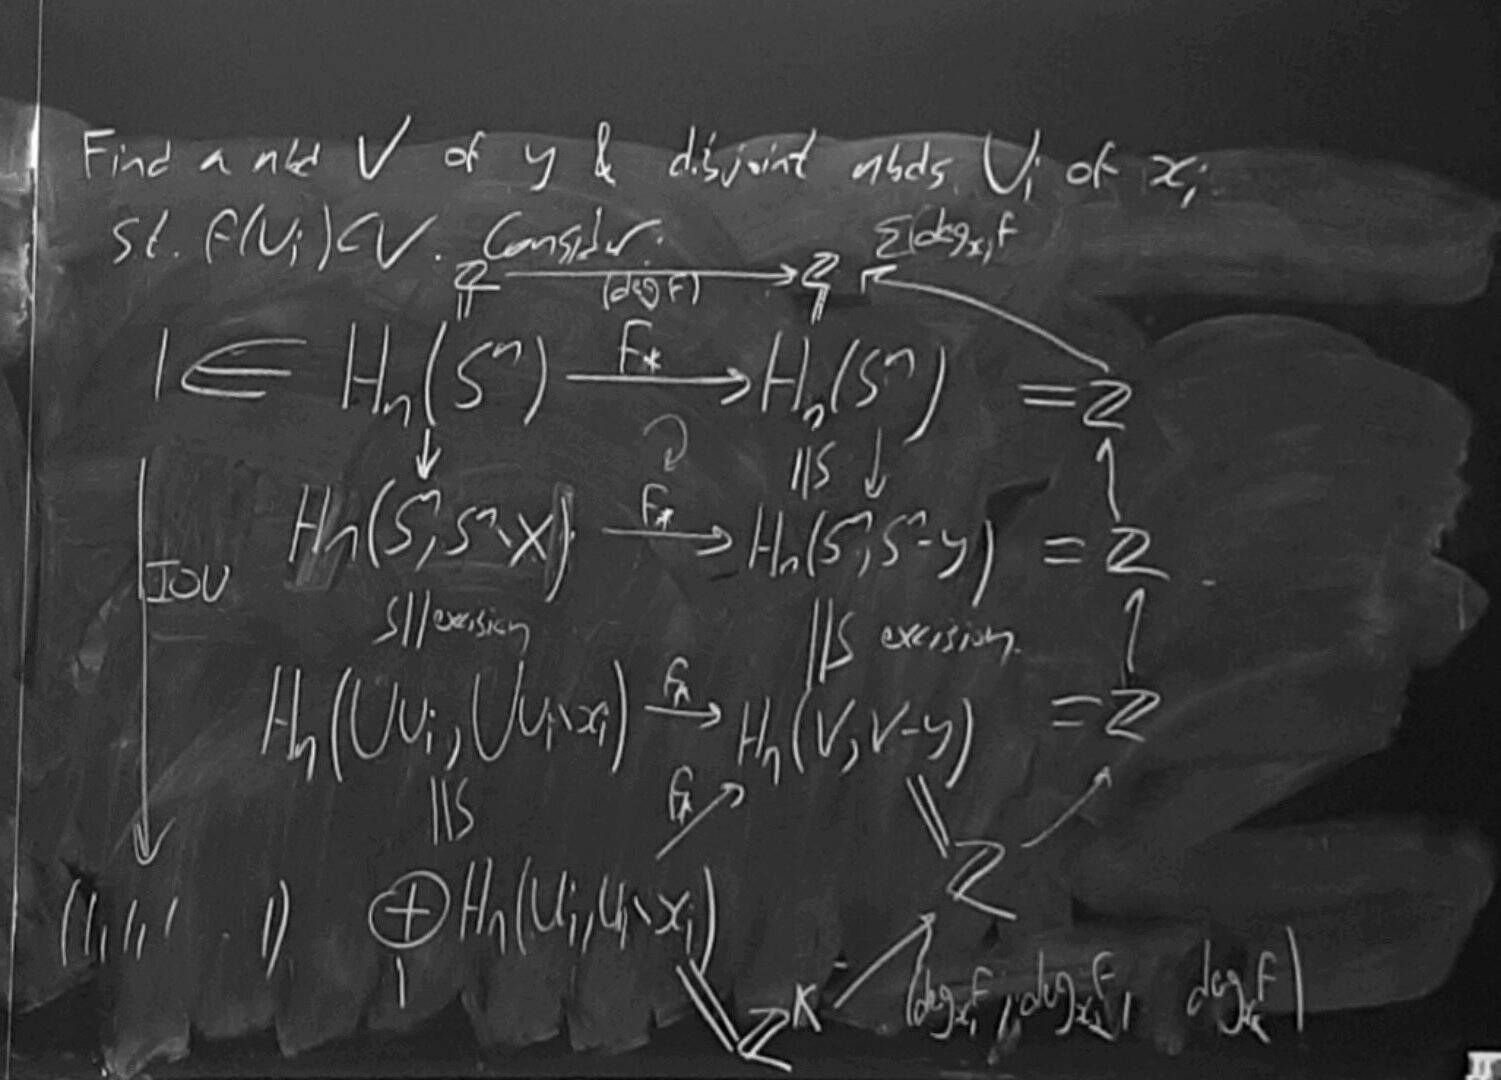 Find a nbd V of y & disjoint nbds. Uᵢ of xᵢ
st. f(Uᵢ)⊂V. Consider:
Σ(deg_{xᵢ} f
ℤ → ℤ
(deg f)
1 ∈ Hₙ(Sⁿ) →^{f_*} Hₙ(Sⁿ) = ℤ
↓ ↻ ||S ↓ ↑
Hₙ(Sⁿ, Sⁿ∖X) →^{f_*} Hₙ(Sⁿ, Sⁿ-y) = ℤ
IOU
S|| excision ||S excision. ↑
Hₙ(⋃Uᵢ, ⋃Uᵢ∖xᵢ) →^{f_*} Hₙ(V, V-y) = ℤ
||S f_* ↗ || ↗
(1,1,1, . 1) ⊕ᵢ Hₙ(Uᵢ, Uᵢ∖xᵢ) ℤ
|| ℤᴷ ↗ (deg_{x₁} f, deg_{x₂} f, deg_{xₖ} f)